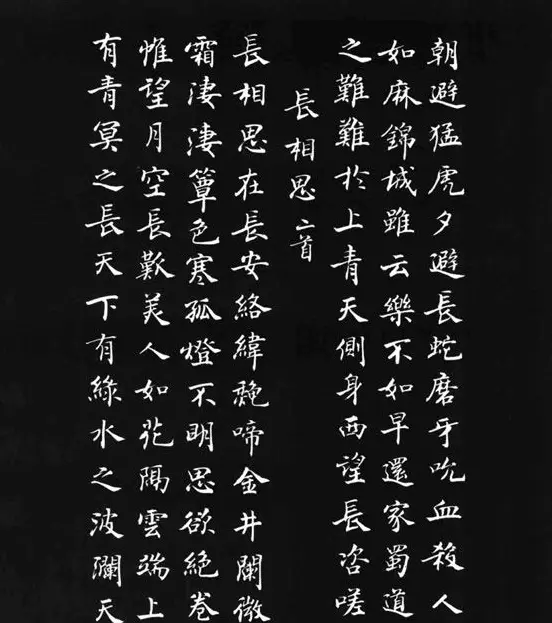 朝避猛虎夕避長蛇磨牙吮血殺人
如麻錦城雖云樂不如早還家蜀道
之難難於上青天側身西望長咨嗟
長相思二首
長相思在長安絡緯秋啼金井闌微
霜淒淒簟色寒孤燈不明思欲絕卷
帷望月空長歎美人如花隔雲端上
有青冥之長天下有綠水之波瀾天